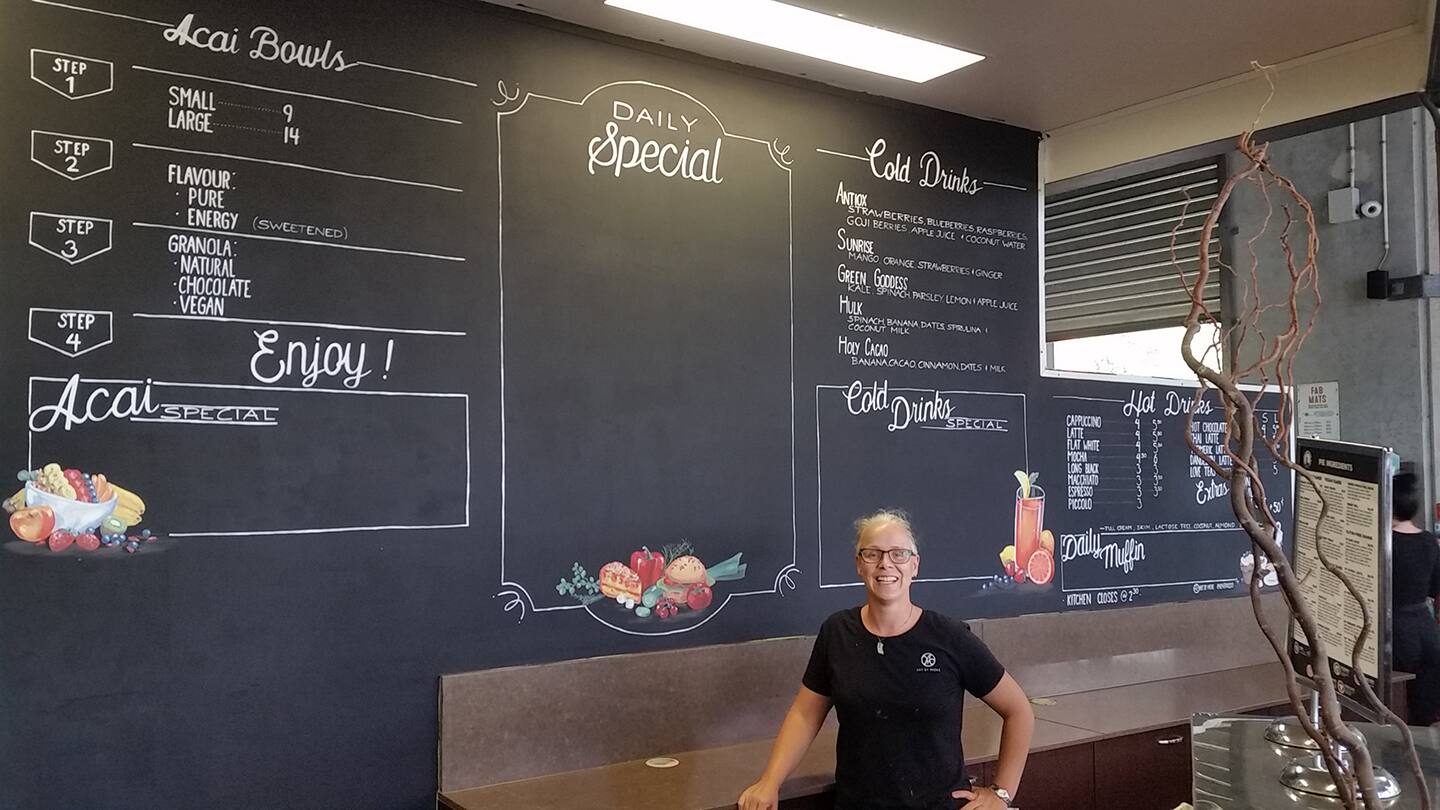 Acai Bowls
STEP 1
SMALL 9
LARGE 14
STEP 2
FLAVOUR:
· PURE
· ENERGY (SWEETENED)
STEP 3
GRANOLA:
· NATURAL
· CHOCOLATE
· VEGAN
STEP 4
Enjoy!
Acai SPECIAL
DAILY
Special
Cold Drinks
ANTIOX
STRAWBERRIES, BLUEBERRIES, RASPBERRIES,
GOJI BERRIES APPLE JUICE & COCONUT WATER
SUNRISE
MANGO, ORANGE, STRAWBERRIES & GINGER
GREEN GODDESS
KALE, SPINACH, PARSLEY, LEMON & APPLE JUICE
HULK
SPINACH, BANANA, DATES, SPIRULINA &
COCONUT MILK
HOLY CACAO
BANANA, CACAO, CINNAMON, DATES & MILK
Cold Drinks
SPECIAL
Hot Drinks
S L
CAPPUCCINO
LATTE
FLAT WHITE
MOCHA
LONG BLACK
MACCHIATO
ESPRESSO
PICCOLO 3
HOT CHOCOLATE
LATTE
LATTE
LATTE
LOVE TEAS
Extras
FULL CREAM, SKIM, LACTOSE FREE, COCONUT, ALMOND
Daily Muffin
KITCHEN CLOSES @ 2 30
FAB
MATS
PIE INGREDIENTS